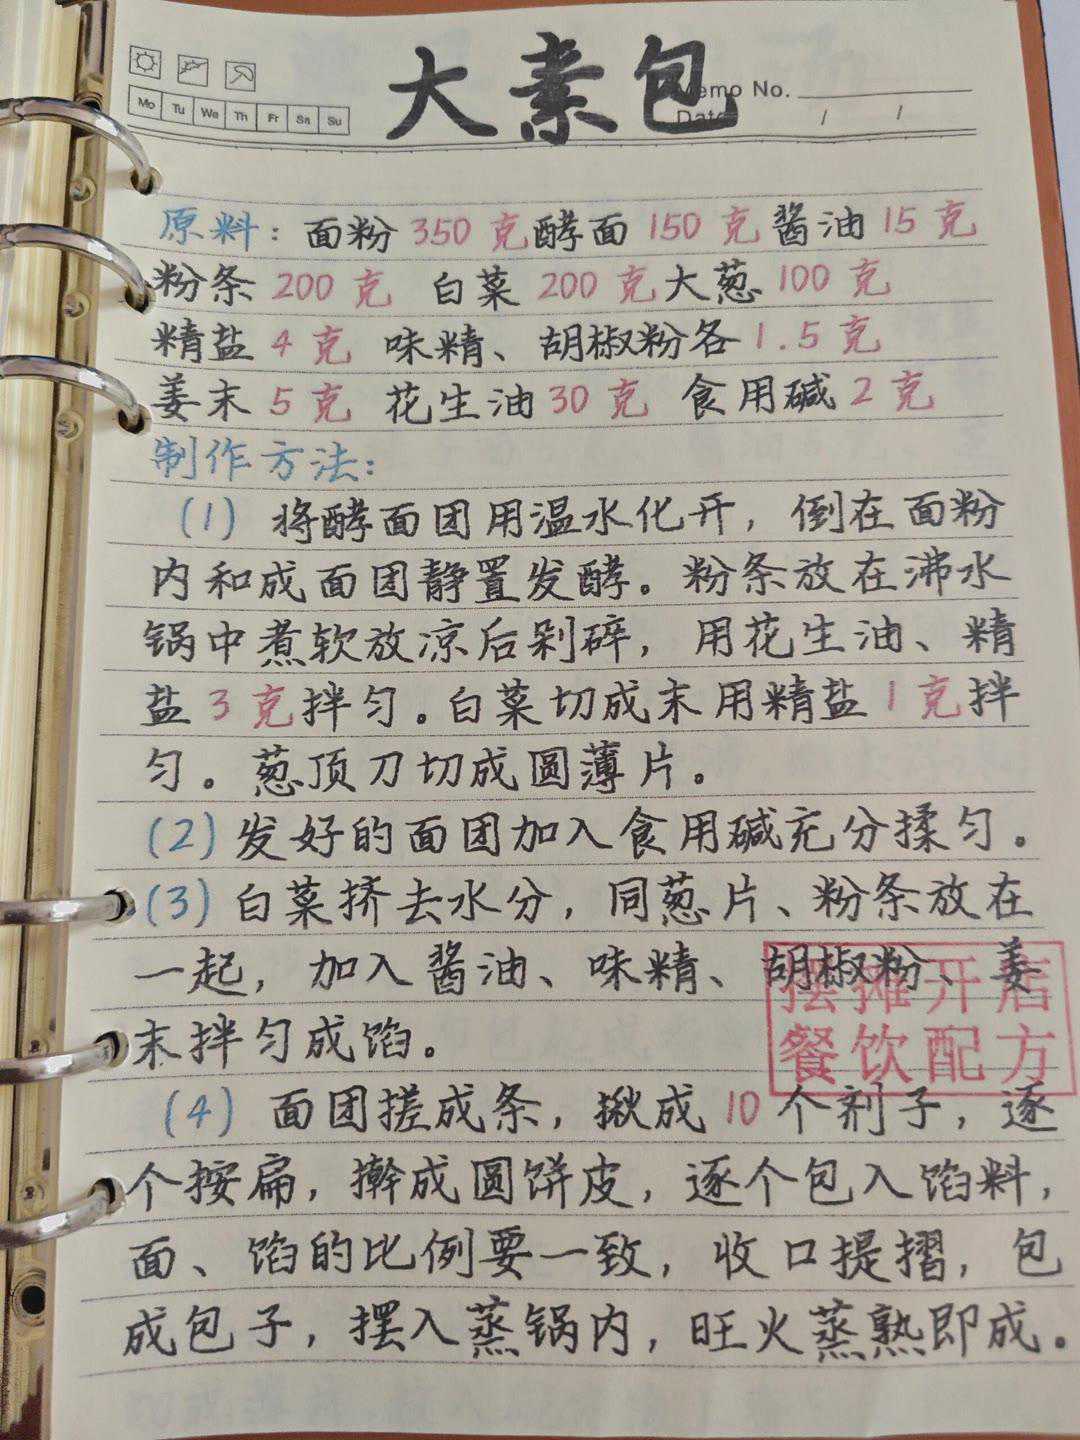 大素包
Memo No.
Date / /
Mo Tu We Th Fr Sa Su
原料：面粉350克酵面150克酱油15克
粉条200克 白菜200克大葱100克
精盐4克 味精、胡椒粉各1.5克
姜末5克 花生油30克 食用碱2克
制作方法：
(1) 将酵面团用温水化开，倒在面粉
内和成面团静置发酵。粉条放在沸水
锅中煮软放凉后剁碎，用花生油、精
盐3克拌匀。白菜切成末用精盐1克拌
匀。葱顶刀切成圆薄片。
(2)发好的面团加入食用碱充分揉匀。
(3)白菜挤去水分，同葱片、粉条放在
一起，加入酱油、味精、胡椒粉、姜
末拌匀成馅。
摆摊开店
餐饮配方
(4) 面团搓成条，揪成10个剂子，逐
个按扁，擀成圆饼皮，逐个包入馅料，
面、馅的比例要一致，收口提摺，包
成包子，摆入蒸锅内，旺火蒸熟即成。